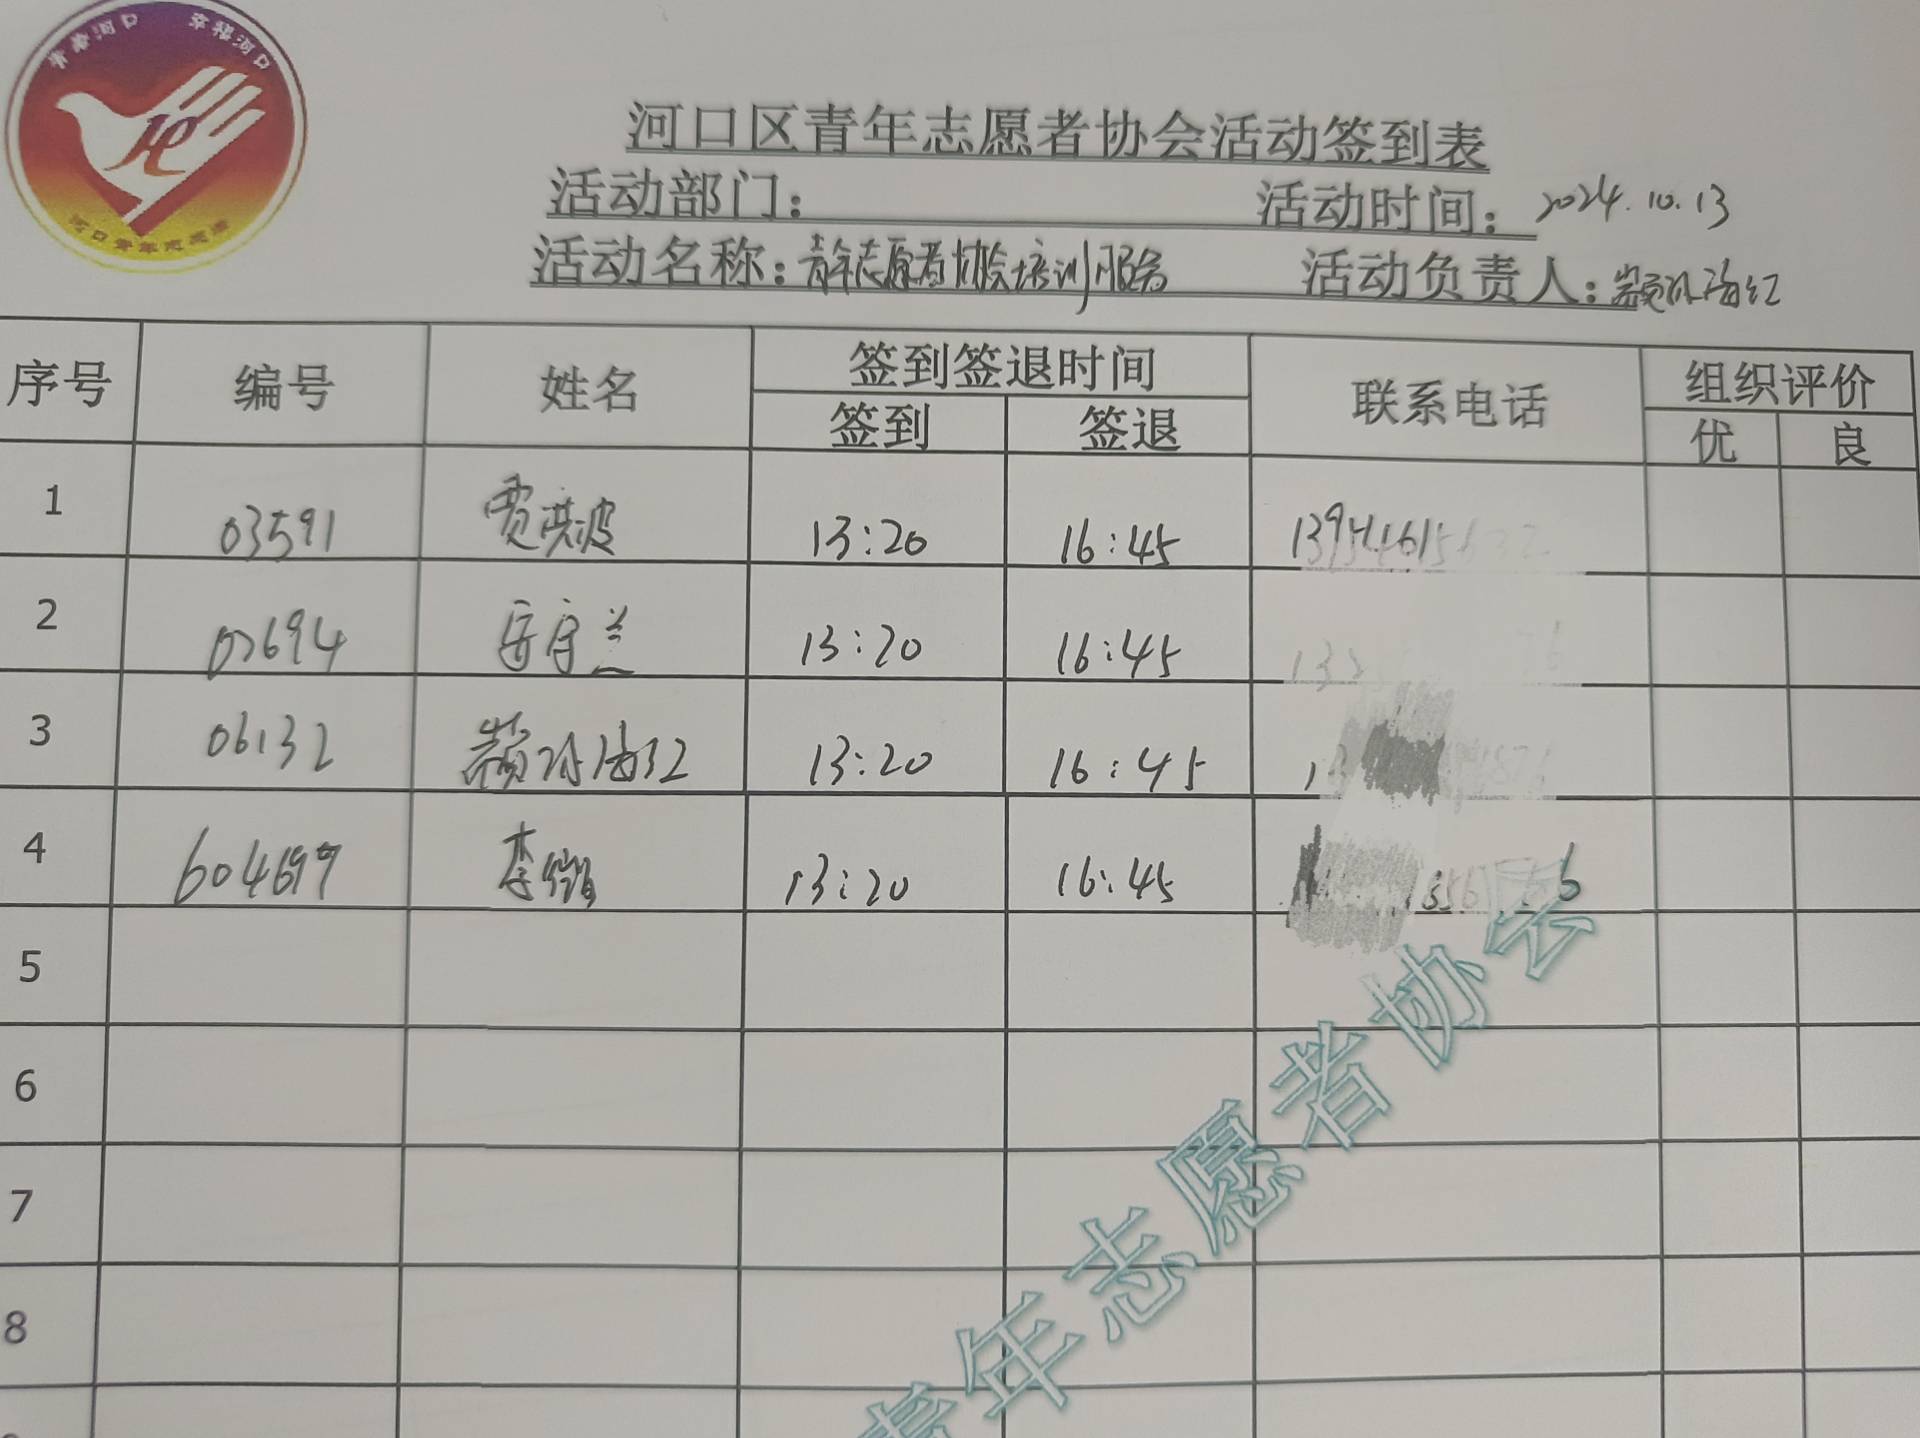 青春河口 幸福河口
河口青年志愿者
河口区青年志愿者协会活动签到表
活动部门: 活动时间: 2024.10.13
活动名称: 青年志愿者协会培训服务 活动负责人: 海红
序号 编号 姓名 签到签退时间 联系电话 组织评价
签到 签退 优 良
1 03591 贾洪波 13:20 16:45
2 02694 13:20 16:45
3 06132 海红 13:20 16:45
4 604699 李 13:20 16:45
5
6
7
8
青年志愿者协会